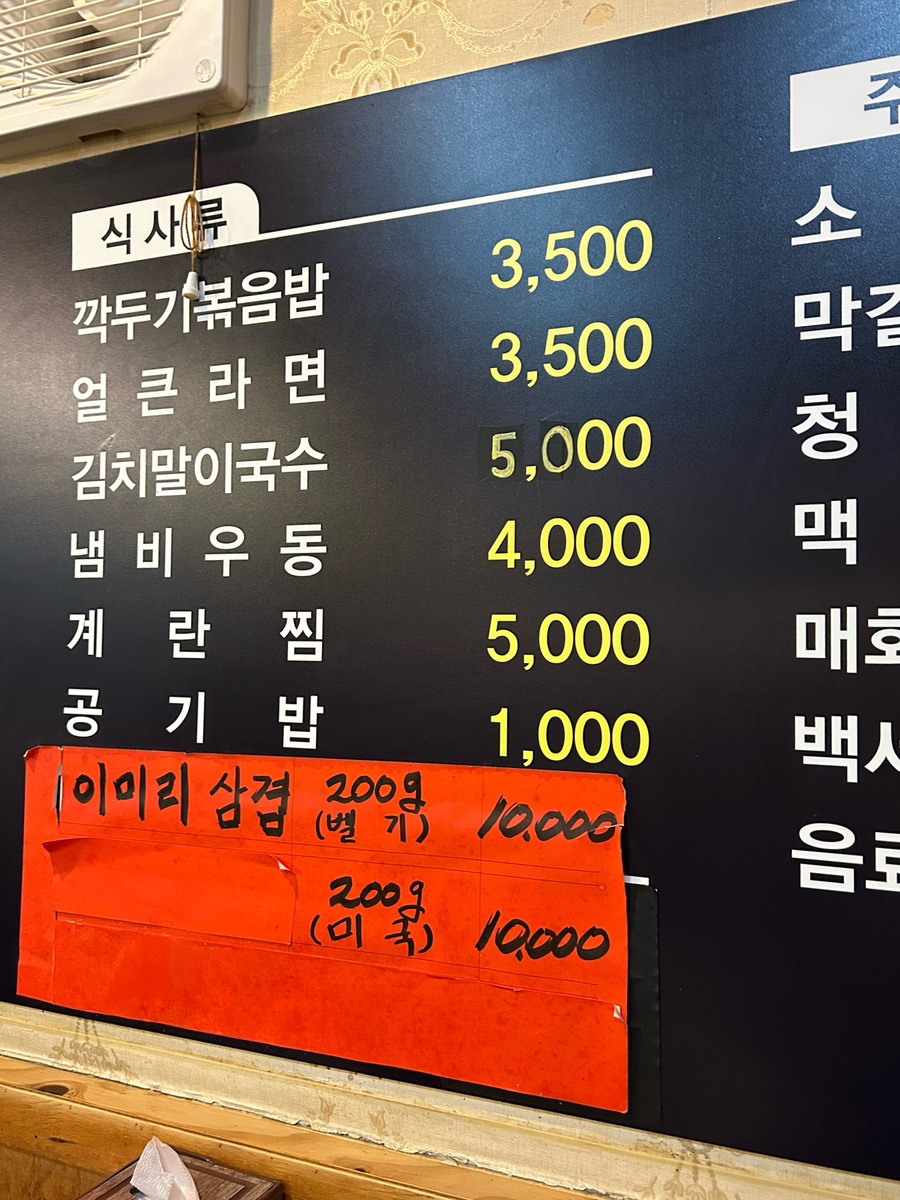 식사류
깍두기볶음밥 3,500
얼큰라면 3,500
김치말이국수 5,000
냄비우동 4,000
계란찜 5,000
공기밥 1,000
이미리 삼겹 200g (벨기) 10.000
200g (미국) 10.000
주
소
막걸
청
맥
매화
백시
음료